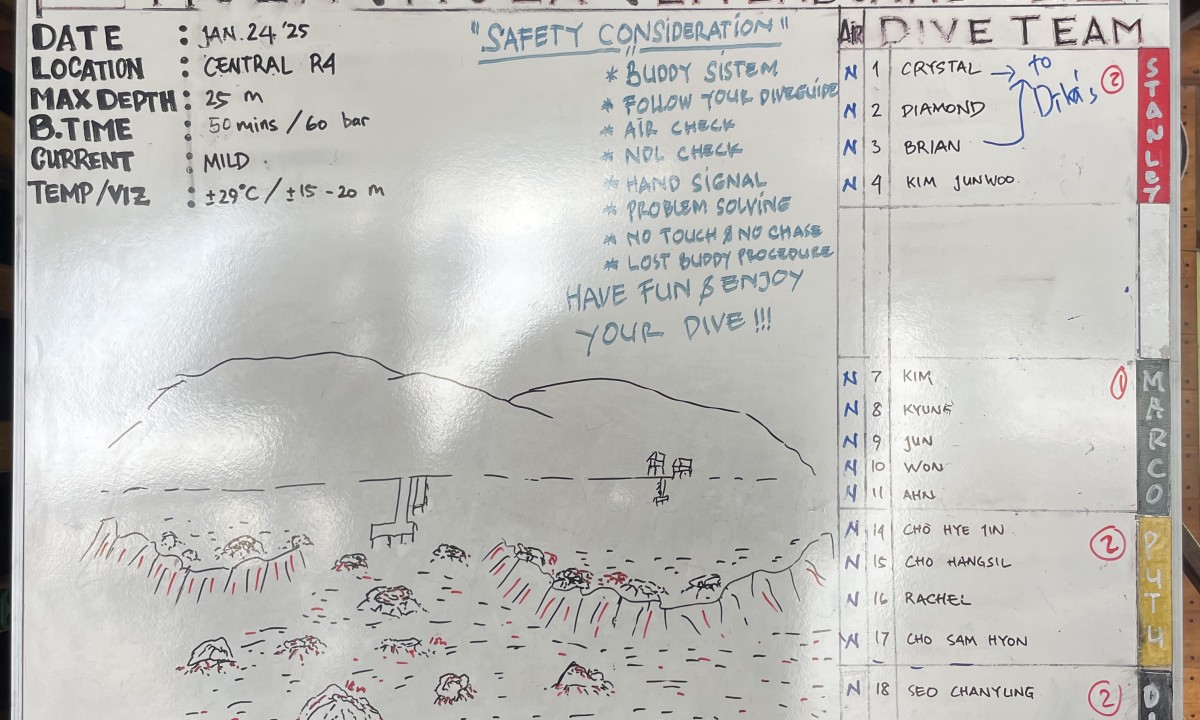 DATE : JAN.24.'25
LOCATION : CENTRAL R4
MAX DEPTH : 25 m
B.TIME : 50 mins / 60 bar
CURRENT : MILD.
TEMP/VIZ : ±29°C / ±15-20 m
"SAFETY CONSIDERATION"
* BUDDY SISTEM
* FOLLOW YOUR DIVEGUIDE
* AIR CHECK
* NDL CHECK
* HAND SIGNAL
* PROBLEM SOLVING
* NO TOUCH & NO CHASE
* LOST BUDDY PROCEDURE
HAVE FUN & ENJOY
YOUR DIVE !!!
18m
AIR DIVE TEAM
N 1 CRYSTAL → to
Dika's
N 2 DIAMOND
N 3 BRIAN
N 4 KIM JUNWOO
2
STANLEY
N 7 KIM
N 8 KYUNG
N 9 JUN
N 10 WON
N 11 AHN
1
MARCO
N 14 CHO HYE JIN
N 15 CHO HANGSIL
N 16 RACHEL
N 17 CHO SAM HYON
2
PUTU
N 18 SEO CHANYUNG
2